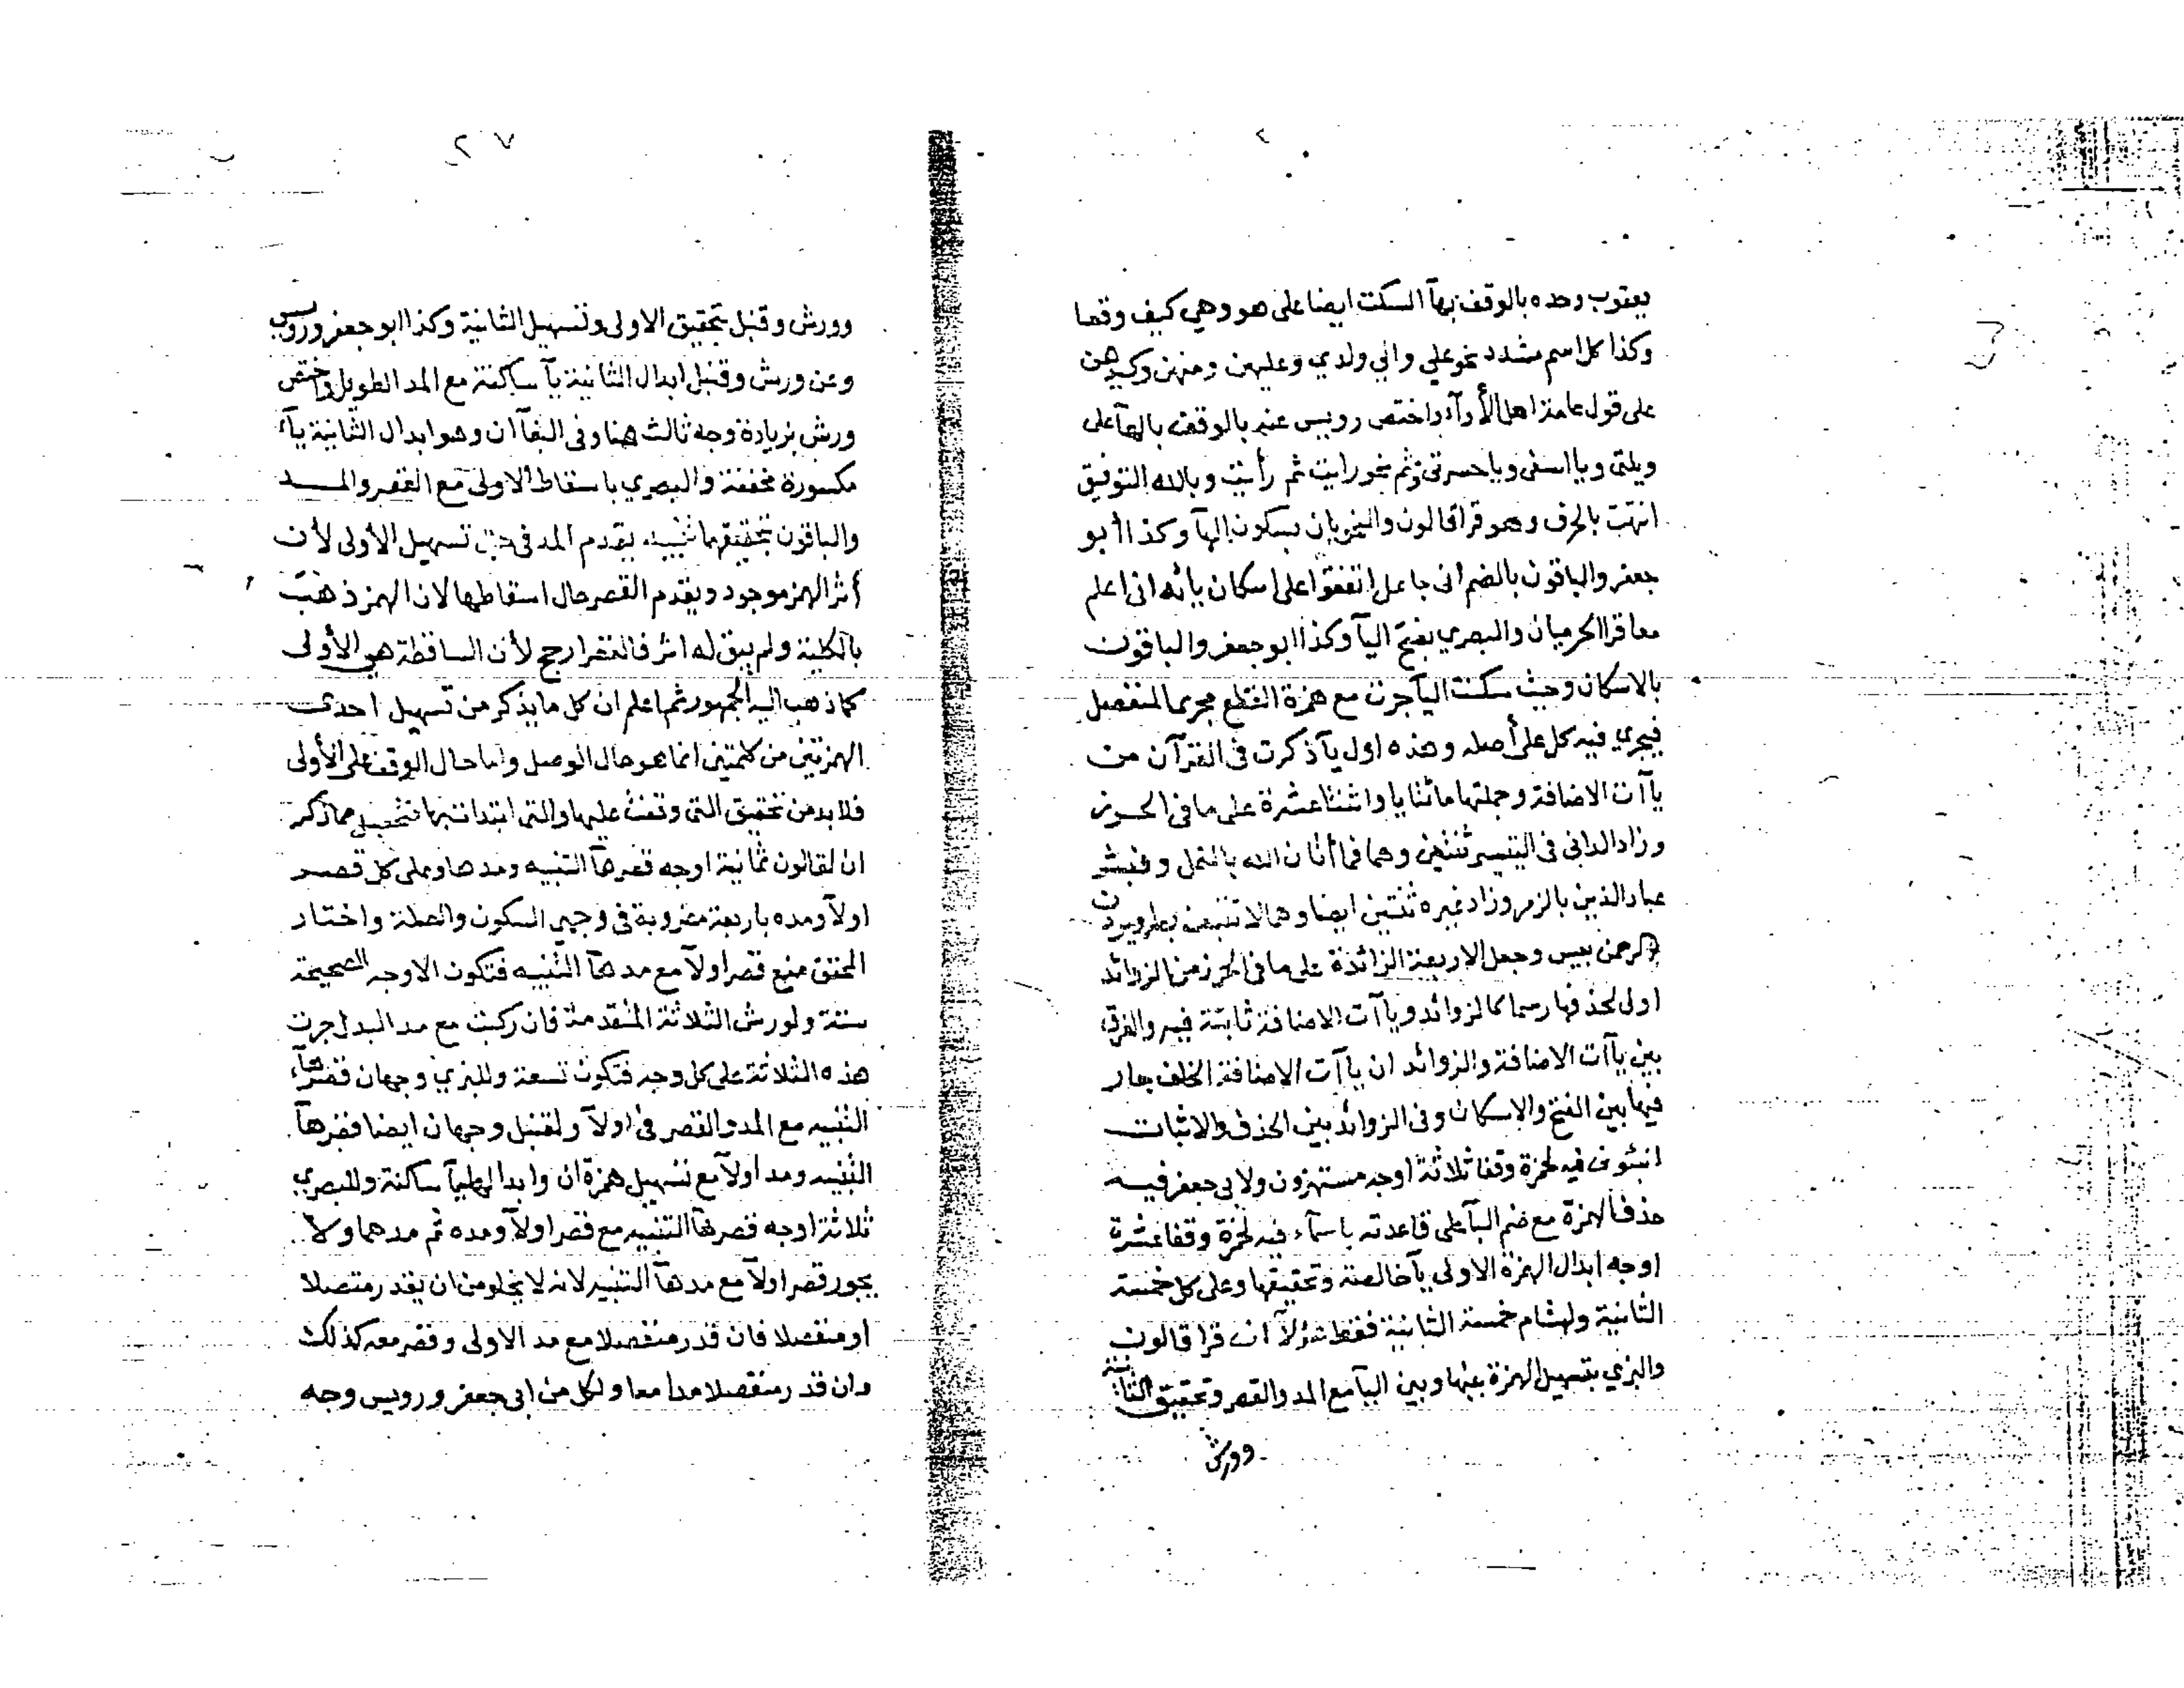 يعقوب وحده بالوقف بهآ السكت ايضا على هو وهي كيف وقعا
وكذا كل اسم مشدد نحو علي والي ولدي وعليهن ومنهن وكيدهن
على قول عامة اهل الأدآء واختص رويس عنه بالوقف بالهآ على
ويلتى ويا اسفى ويا حسرتى وثم نحو رايت ثم رأيت وبالله التوفيق
انتهت بالحرف وهو قرا قالون والنحويان بسكون الهآ وكذا أبو
جعفر والباقون بالضم انى جاعل اتفقوا على اسكان يائه انى اعلم
معا قرا الحرميان والبصري بفتح اليآ وكذا ابو جعفر والباقون
بالاسكان وحيث سكنت اليآ جرت مع همزة القطع مجرى المنفصل
فيجري فيه كل على أصله وهذه اول يآ ذكرت فى القرآن من
يآآت الاضافة وجملتها مائتا يا واثنتا عشرة على ما فى الحرز
وزاد الدانى فى التيسير ثنتين وهما فما أتان الله بالنمل وفبشر
عباد الذين بالزمر وزاد غيره ثنتين ايضا وهما لا تتبعن بطه ويردن
الرحمن بيس وجعل الاربعة الزائدة على ما فى الحرز من الزوائد
اولى لحذفها رسما كالزوائد ويآآت الاضافة ثابتة فيه والفرق
بين يآآت الاضافة والزوائد ان يآآت الاضافة الخلف جار
فيها بين الفتح والاسكان وفى الزوائد بين الحذف والاثبات
انبئونى فيه لحمزة وقفا ثلاثة اوجه مستهزون ولابى جعفر فيه
حذف الهمزة مع ضم البآ على قاعدته باسمآء فيه لحمزة وقفا عشرة
اوجه ابدال الهمزة الاولى يآ خالصة وتحقيقها وعلى كل خمسة
الثانية ولهشام خمسة الثانية فقط هؤلآ ان قرا قالون
والبزي بتسهيل الهمزة بينها وبين اليآ مع المد والقصر وتحقيق الثانية
وورش
٢٧
وورش وقنبل بتحقيق الاولى وتسهيل الثانية وكذا ابو جعفر ورويس
وعن ورش وقنبل ابدال الثانية يآ ساكنة مع المد الطويل واختص
ورش بزيادة وجه ثالث هنا وفى البغآ ان وهو ابدال الثانية يآء
مكسورة مخففة والبصري باسقاط الاولى مع القصر والمد
والباقون بتحقيقهما تنبيه يقدم المد فى تسهيل الأولى لأن
أثر الهمز موجود ويقدم القصر حال اسقاطها لان الهمز ذهب
بالكلية ولم يبق له اثر فالقصر ارجح لأن الساقطة هي الأولى
كما ذهب اليه الجمهور ثم اعلم ان كل ما يذكر من تسهيل احدى
الهمزتين من كلمتين انما هو حال الوصل واما حال الوقف على الأولى
فلا بد من تحقيق التى وقفت عليها والتى ابتدات بها فتحصل مما ذكر
ان لقالون ثمانية اوجه قصرهآ التنبيه ومدها وعلى كل قصر
اولآ ومده باربعة مضروبة فى وجهي السكون والصلة واختار
المحقق منع قصر اولآ مع مد هآ التنبيه فتكون الاوجه الصحيحة
ستة ولورش الثلاثة المتقدمة فان ركبت مع مد البدل جرت
هذه الثلاثة على كل وجه فتكون تسعة وللبزي وجهان قصر هآء
التنبيه مع المد والقصر فى اولآ ولقنبل وجهان ايضا قصر هآ
التنبيه ومد اولآ مع تسهيل همزة ان وابدالها يآ ساكنة وللبصري
ثلاثة اوجه قصر هآ التنبيه مع قصر اولآ ومده ثم مدهما ولا
يجوز قصر اولآ مع مد هآ التنبيه لانه لا يخلو من ان يقدر متصلا
او منفصلا فان قدر منفصلا مع مد الاولى وقصر معه كذلك
وان قدر منفصلا مدا معا ولكل من ابى جعفر ورويس وجه